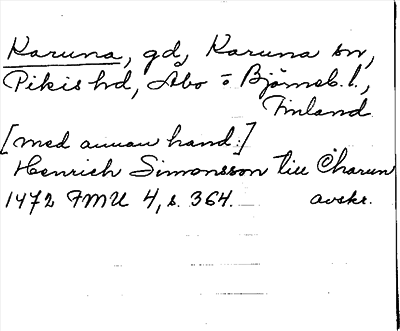 Karuna, gd, Karuna sn,
Pikis hd, Åbo o Björneb. l.,
Finland
[med annan hand:]
Henrich Simonsson till Charun
1472 FMU 4, s. 364. avskr.